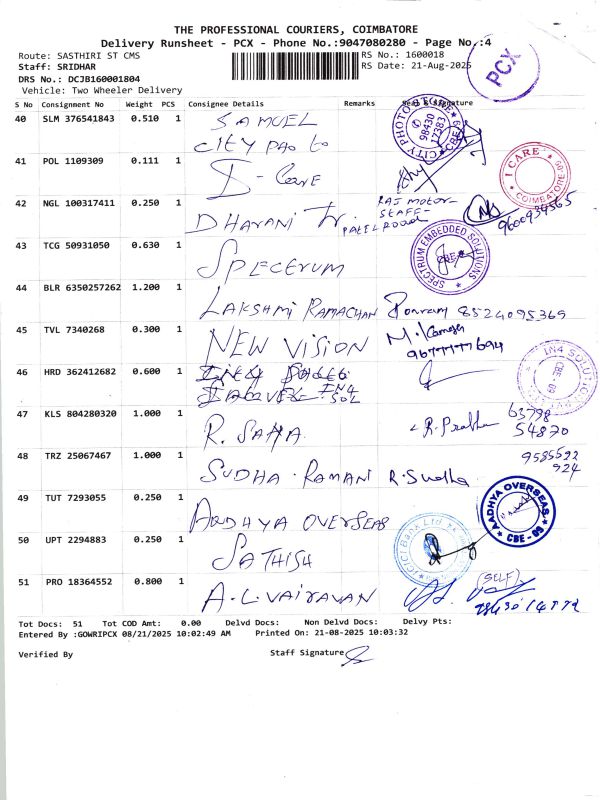 THE PROFESSIONAL COURIERS, COIMBATORE
Delivery Runsheet - PCX - Phone No.:9047080280 - Page No.:4
Route: SASTHIRI ST CMS
RS No.: 1600018
Staff: SRIDHAR
RS Date: 21-Aug-2025
PCX
DRS No.: DCJB160001804
Vehicle: Two Wheeler Delivery
S No Consignment No Weight PCS Consignee Details Remarks Seal & Signature
40 SLM 376541843 0.510 1 SAMUEL
CITY PHOTO
CITY PHOTO
98430
17383
CBE
41 POL 1109309 0.111 1 I-Care
I CARE
COIMBATORE
42 NGL 100317411 0.250 1 DHARANI Tr. RAJ MOTOR-
STAFF-
PATEL ROAD
9600934565
43 TCG 50931050 0.630 1 SPLECERUM
SPECTRUM EMBEDDED SOLUTIONS
CBE
44 BLR 6350257262 1.200 1 LAKSHMI RAMACHAN Ponram 8524095369
45 TVL 7340268 0.300 1 NEW VISION
46 HRD 362412682 0.600 1
IN4
SOL
IN4 SOLUTION
CBE-09
47 KLS 804280320 1.000 1 R. SAHA R. Prabha 63798
54870
48 TRZ 25067467 1.000 1 SUDHA. RAMANI R. Sudha 9585592
924
49 TUT 7293055 0.250 1 AADHYA OVERSEAS
AADHYA OVERSEAS
CBE-09
50 UPT 2294883 0.250 1 SATHISH
ICICI Bank Ltd
51 PRO 18364552 0.800 1 A.L.VAIRAVAN (SELF)
Tot Docs: 51 Tot COD Amt: 0.00 Delvd Docs: Non Delvd Docs: Delvy Pts:
Entered By :GOWRIPCX 08/21/2025 10:02:49 AM Printed On: 21-08-2025 10:03:32
Verified By Staff Signature